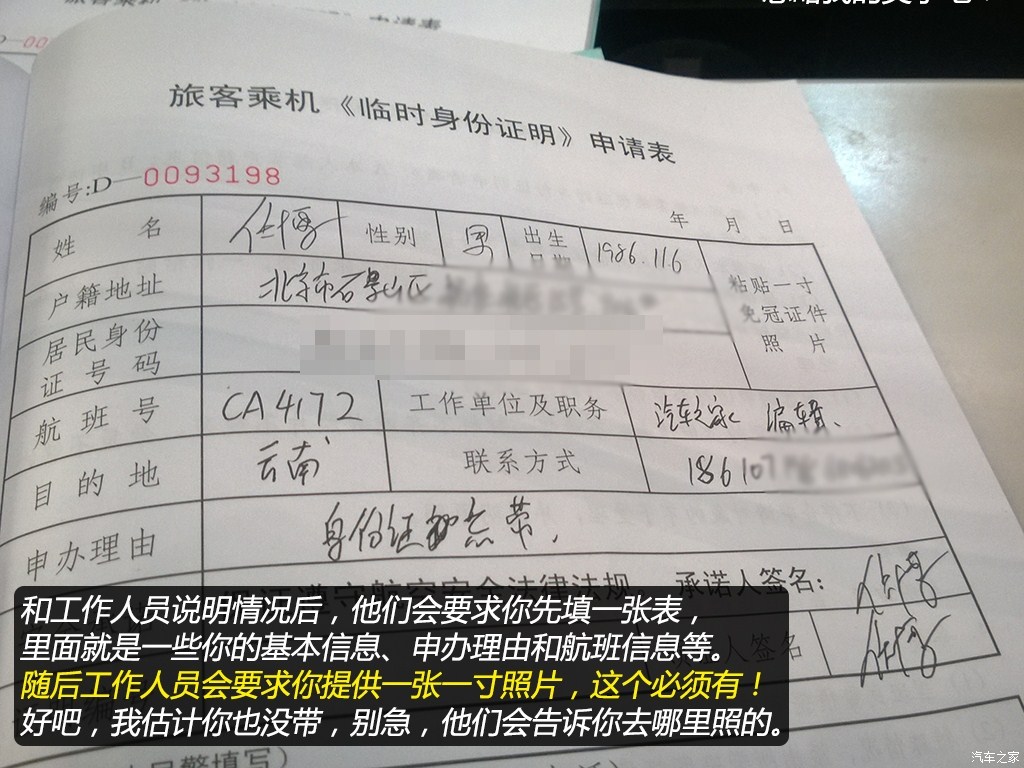 旅客乘机《临时身份证明》申请表
编号:D—0093198
年 月 日
姓名 任博 性别 男 出生日期 1986.11.6 粘贴一寸免冠证件照片
户籍地址 北京市石景山区
居民身份证号码
航班号 CA4172 工作单位及职务 汽车之家 编辑、
目的地 云南 联系方式 186107
申办理由 身份证忘带,
遵守航空安全法律法规 承诺人签名:
签名
和工作人员说明情况后，他们会要求你先填一张表，
里面就是一些你的基本信息、申办理由和航班信息等。
随后工作人员会要求你提供一张一寸照片，这个必须有！
好吧，我估计你也没带，别急，他们会告诉你去哪里照的。
民警填写）
汽车之家